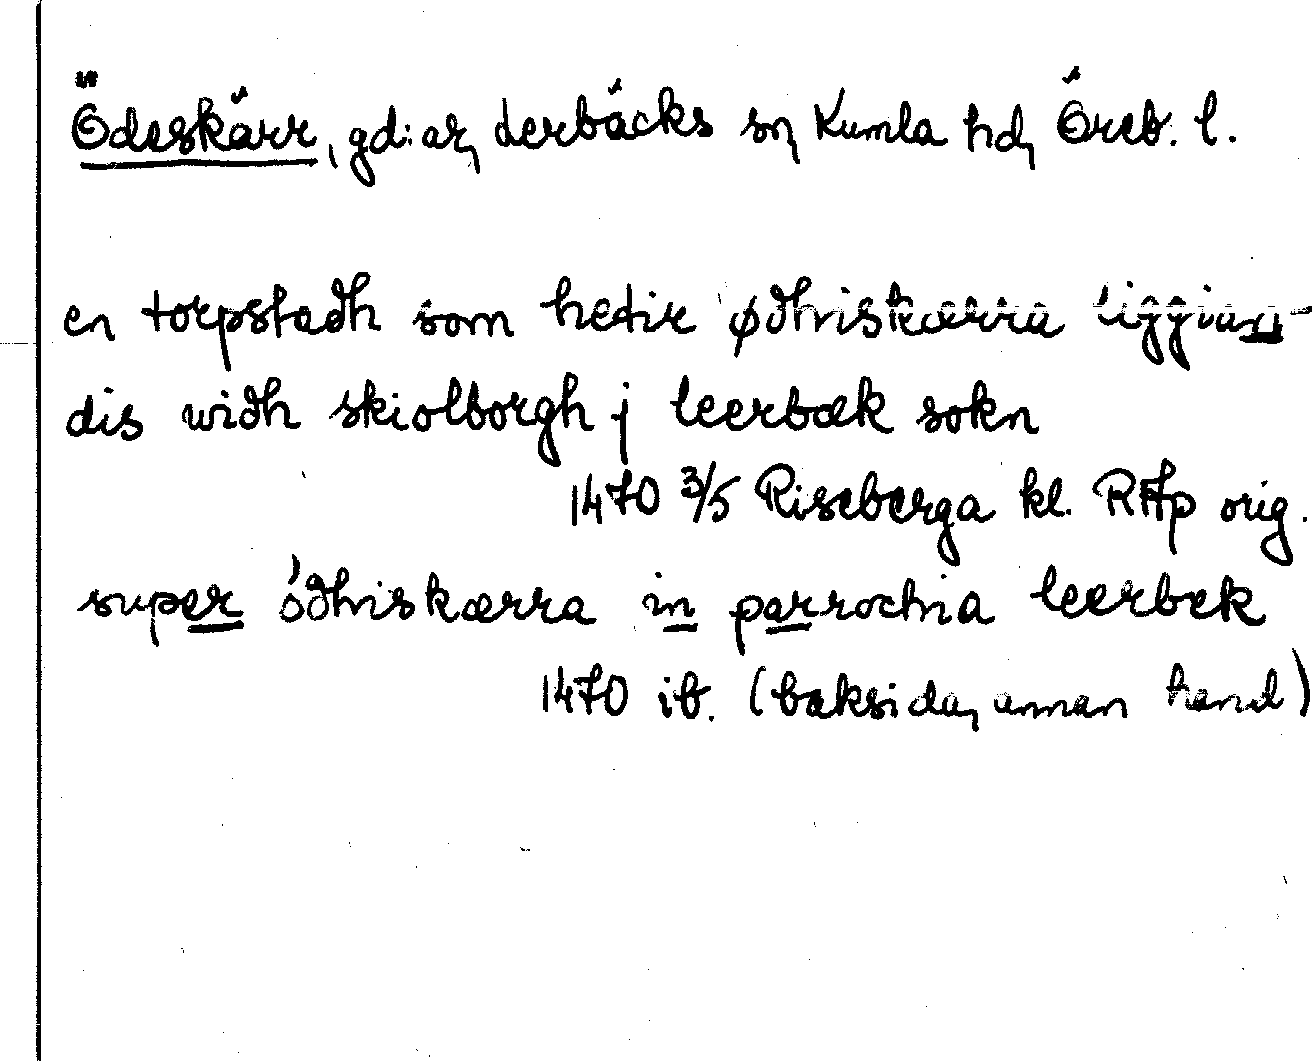 Ödeskärr, gd:ar, Lerbäcks sn, Kumla hd, Öreb. l.
en torpstadh som hetir ødhniskærra liggian-
dis widh skiolborgh j leerbæk sokn
1470 3/5 Riseberga kl. RAp orig.
super ödhniskærra in parrochia leerbek
1470 ib. (baksida, annan hand)